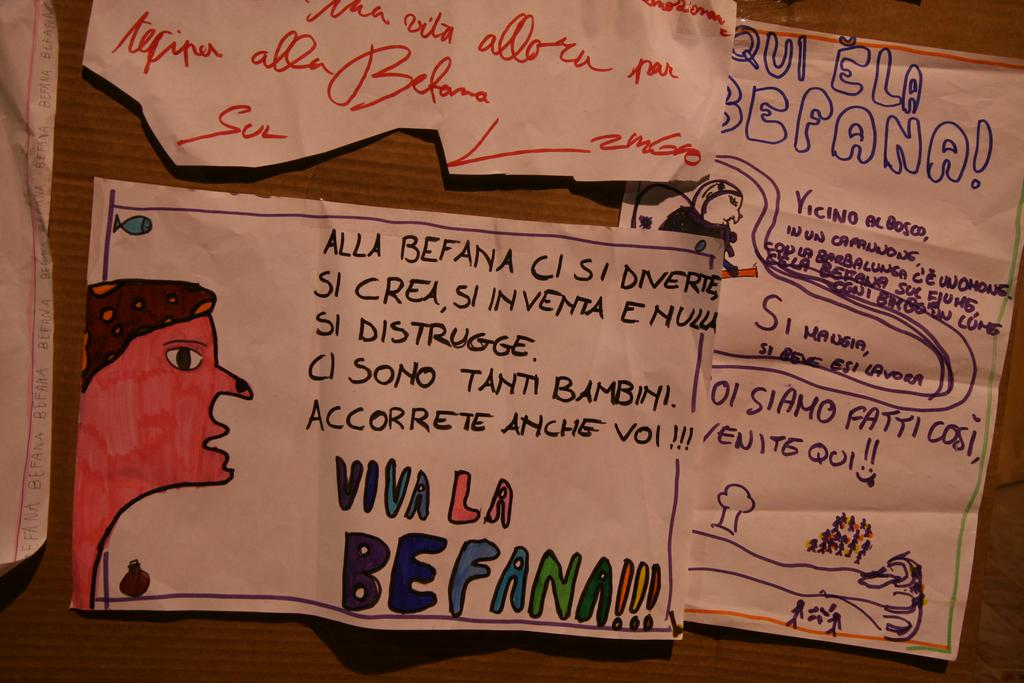 una vita allora par
tecipa alla Befana
Sul
ALLA BEFANA CI SI DIVERTE,
SI CREA, SI INVENTA E NULLA
SI DISTRUGGE.
CI SONO TANTI BAMBINI.
ACCORRETE ANCHE VOI!!!
VIVA LA
BEFANA!!!
QUI È LA
BEFANA!
VICINO AL BOSCO,
IN UN CAPANNONE,
CON LA BARBA LUNGA C'È UN OMONE.
È LA BEFANA SUL FIUME,
OGNI UN LUME
SI MANGIA,
SI BEVE E SI LAVORA
OI SIAMO FATTI COSÌ,
VENITE QUI!!
BEFANA BEFANA BEFANA BEFANA BEFANA BEFANA